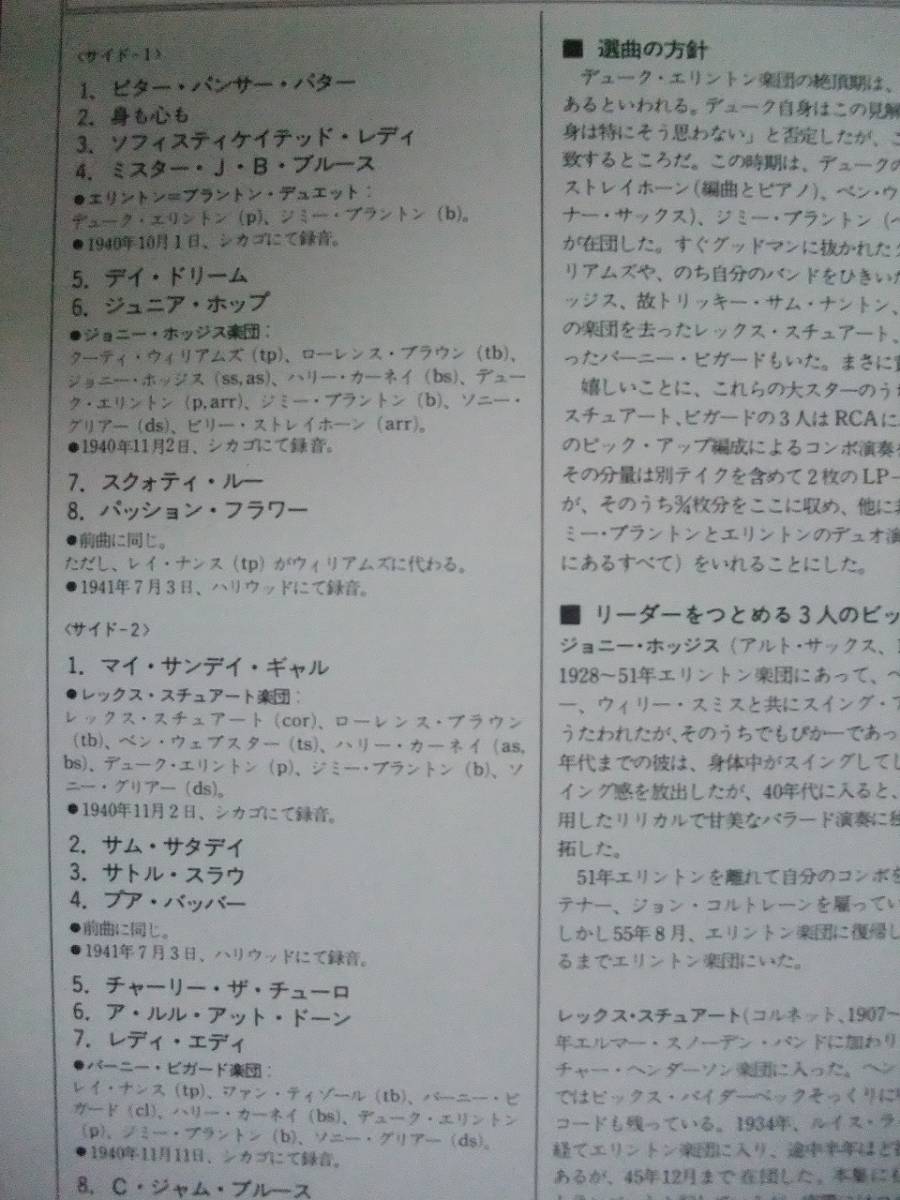 〈サイド-1〉
1. ピター・パンサー・パター
2. 身も心も
3. ソフィスティケイテッド・レディ
4. ミスター・J・B・ブルース
●エリントン=ブラントン・デュエット:
デューク・エリントン (p)、ジミー・ブラントン (b)。
●1940年10月1日、シカゴにて録音。
5. デイ・ドリーム
6. ジュニア・ホップ
●ジョニー・ホッジス楽団:
クーティ・ウィリアムズ (tp)、ローレンス・ブラウン (tb)、
ジョニー・ホッジス (ss,as)、ハリー・カーネイ (bs)、デュー
ク・エリントン (p,arr)、ジミー・ブラントン (b)、ソニー・
グリアー (ds)、ビリー・ストレイホーン (arr)。
●1940年11月2日、シカゴにて録音。
7. スクォティ・ルー
8. パッション・フラワー
●前曲に同じ。
ただし、レイ・ナンス (tp) がウィリアムズに代わる。
●1941年7月3日、ハリウッドにて録音。
〈サイド-2〉
1. マイ・サンデイ・ギャル
●レックス・スチュアート楽団:
レックス・スチュアート (cor)、ローレンス・ブラウン
(tb)、ベン・ウェブスター (ts)、ハリー・カーネイ (as,
bs)、デューク・エリントン (p)、ジミー・ブラントン (b)、ソ
ニー・グリアー (ds)。
●1940年11月2日、シカゴにて録音。
2. サム・サタデイ
3. サトル・スラウ
4. プア・バッバー
●前曲に同じ。
●1941年7月3日、ハリウッドにて録音。
5. チャーリー・ザ・チューロ
6. ア・ルル・アット・ドーン
7. レディ・エディ
●バーニー・ビガード楽団:
レイ・ナンス (tp)、ファン・ティゾール (tb)、バーニー・ビ
ガード (cl)、ハリー・カーネイ (bs)、デューク・エリントン
(p)、ジミー・ブラントン (b)、ソニー・グリアー (ds)。
●1940年11月11日、シカゴにて録音。
8. C・ジャム・ブルース
■ 選曲の方針
デューク・エリントン楽団の絶頂期は、
あるといわれる。デューク自身はこの見解
身は特にそう思わない」と否定したが、こ
致するところだ。この時期は、デュークの
ストレイホーン(編曲とピアノ)、ベン・ウ
ナー・サックス)、ジミー・ブラントン (ベ
が在団した。すぐグッドマンに抜かれた
リアムズや、のち自分のバンドをひきいた
ッジス、故トリッキー・サム・ナントン、
の楽団を去ったレックス・スチュアート、
ったバーニー・ビガードもいた。まさに
嬉しいことに、これらの大スターのうち
スチュアート、ビガードの3人はRCAに
のピック・アップ編成によるコンボ演奏
その分量は別テイクを含めて2枚のLP
が、そのうち¾枚分をここに収め、他に
ミー・ブラントンとエリントンのデュオ演
にあるすべて) をいれることにした。
■ リーダーをつとめる3人のビッ
ジョニー・ホッジス (アルト・サックス、1
1928~51年エリントン楽団にあって、ベ
ー、ウィリー・スミスと共にスイング・ア
うたわれたが、そのうちでもぴか一であっ
年代までの彼は、身体中がスイングしてし
イング感を放出したが、40年代に入ると、
用したリリカルで甘美なバラード演奏に独
拓した。
51年エリントンを離れて自分のコンボを
テナー、ジョン・コルトレーンを雇ってい
しかし55年8月、エリントン楽団に復帰し
るまでエリントン楽団にいた。
レックス・スチュアート(コルネット、1907~
年エルマー・スノーデン・バンドに加わり
チャー・ヘンダーソン楽団に入った。ヘン
ではビックス・バイダーベックそっくりに
コードも残っている。1934年、ルイス・ラ
経てエリントン楽団に入り、途中半年ほど
あるが、45年12月まで在団した。本盤に